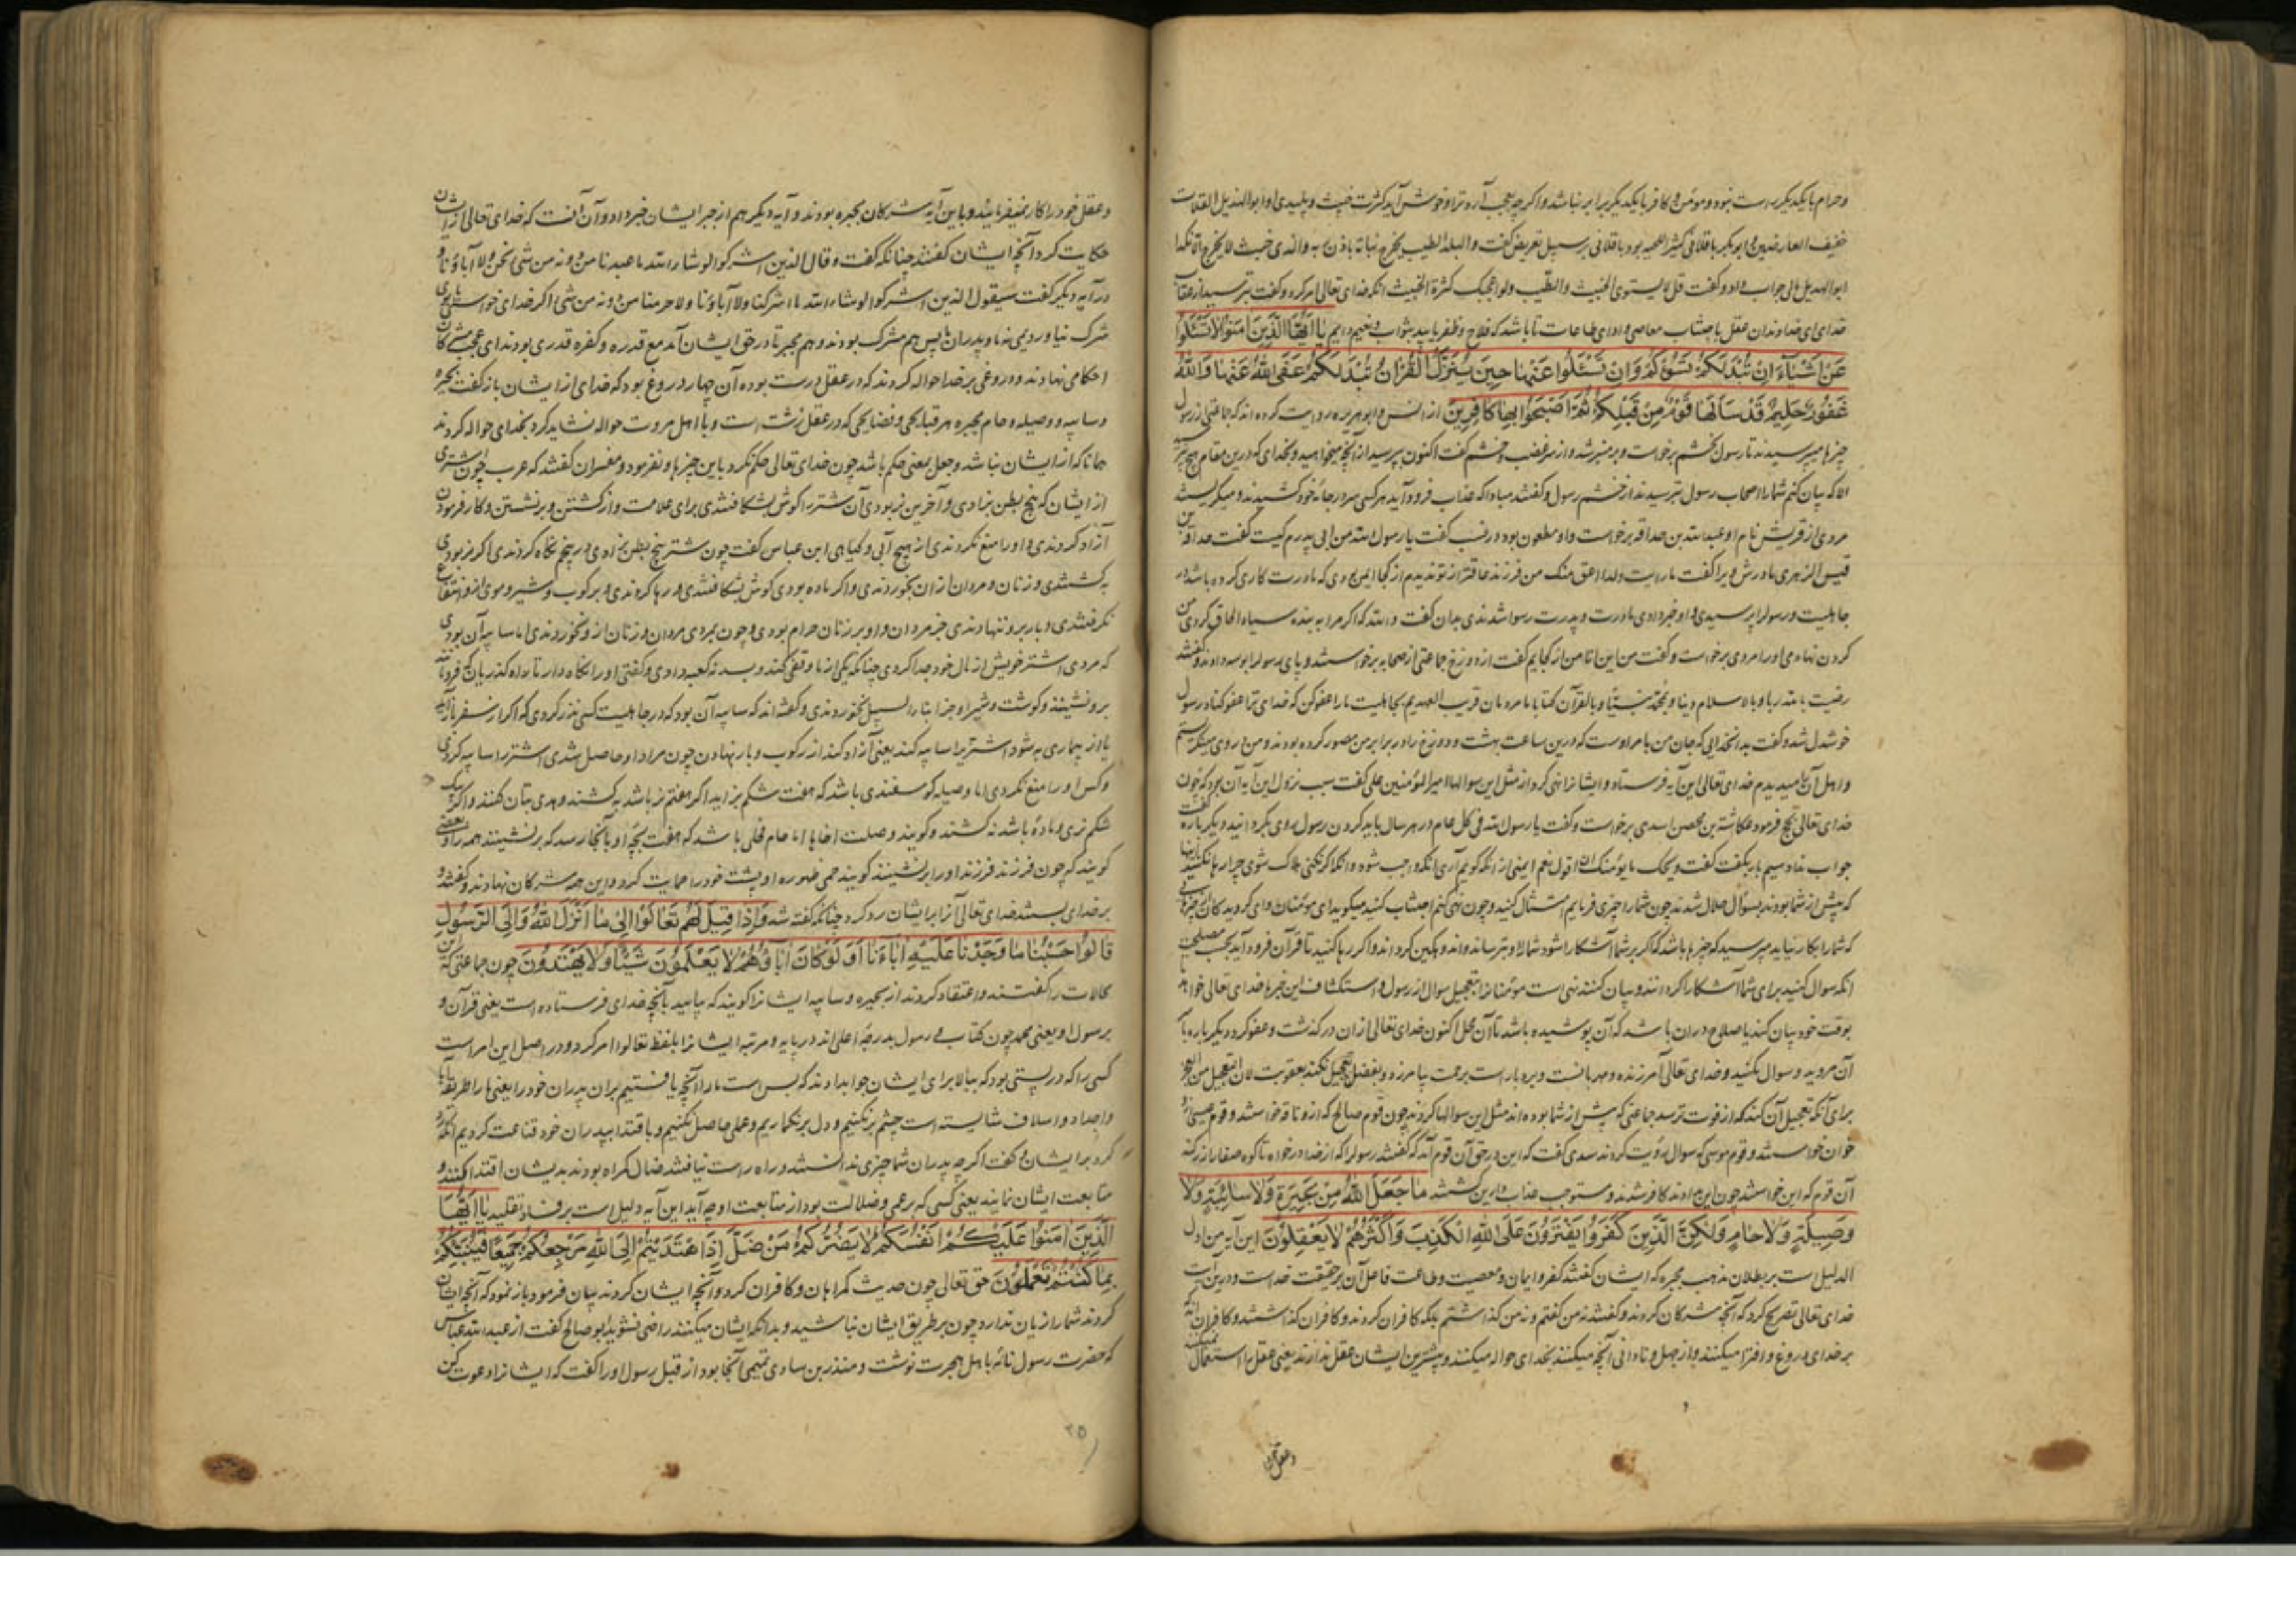 وحرام با یکدیگر راست نبود و مومن و کافر با یکدیگر برابر نباشد و اگرچه بعجب آرد ترا و خوش آید کثرت خبیث و پلیدی او ابوالهذیل العلاف
خفیف العارضین و ابوبکر باقلانی کثیر اللحیه بود باقلانی بر سبیل تعریض گفت والبلد الطیب یخرج نباته باذن ربه والذی خبث لا یخرج الا نکدا
ابوالهذیل جواب داد و گفت قل لا یستوی الخبیث والطیب ولو اعجبک کثرة الخبیث آنکه خدای تعالی امر کرد و گفت بترسید از عقاب
خدای ای خداوندان عقل باجتناب معاصی و ادای طاعات تا باشد که فلاح و ظفر یابید بثواب و نعیم دایم یا ایها الذین امنوا لا تسئلوا
عن اشیاء ان تبد لکم تسؤکم وان تسئلوا عنها حین ینزل القران تبد لکم عفی الله عنها والله
غفور حلیم قد سالها قوم من قبلکم ثم اصبحوا بها کافرین از انس و ابوهریره روایت کرده اند که جماعتی از رسول
چیزها میپرسیدند تا رسول بخشم برخواست و بر منبر شد و از سر غضب و خشم گفت اکنون بپرسید از آنچه میخواهید و بخدای که درین مقام هیچ
الا که بیان کنم شما را اصحاب رسول بترسیدند از خشم رسول و گفتند مبادا که عذاب فرود آید هرکسی سر در جامه خود کشیدند و میگریستند
مردی از قریش نام او عبدالله بن حذافه برخواست و او مطعون بود در نسب گفت یا رسول الله من ابی پدرم کیست گفت حذافه بن
قیس الزهری مادرش ویرا گفت ما رایت ولدا اعق منک من فرزند عاقتر از تو ندیدم از کجا ایمن بودی که مادرت کاری کرده باشد در
جاهلیت و رسول را پرسیدی و او خبر دادی مادرت و پدرت رسوا شدندی بدان گفت والله که اگر مرا به بنده سیاه الحاق کردی من
گردن نهادمی او را مردی برخواست و گفت من این انا من از کجایم گفت از دوزخ جماعتی از صحابه برخواستند و پای رسول را بوسه دادند و گفتند
رضیت بالله ربا و بالاسلام دینا و بمحمد نبیا و بالقرآن کتابا ما مردمان قریب العهدیم بجاهلیت ما را عفو کن که خدای ترا عفو کناد رسول
خوشدل شد و گفت بدان خدایی که جان من بامر اوست که درین ساعت بهشت و دوزخ را در برابر من مصور کرده بودند و من در وی مینگرستم
و اهل آن میدیدم خدای تعالی این آیه فرستاد و ایشانرا نهی کرد از مثل این سوالها امیرالمومنین علی گفت سبب نزول این آیه آن بود که چون
خدای تعالی حج فرمود عکاشة بن محصن اسدی برخواست و گفت یا رسول الله فی کل عام در هر سال باید کردن رسول روی بگردانید دیگرباره گفت
جواب نداد سیم بار بگفت گفت ویحک ما یؤمنک ان اقول نعم ایمنی از آنکه گویم آری آنکه واجب شود و آنکه اگر نکنی هلاک شوی چرا رها نکنید
که پیش از شما بودند بسؤال ضلال شدند چون شما را چیزی فرمایم امتثال کنید و چون نهی کنم اجتناب کنید میگوید ای مومنان
که شما را بکار نیاید مپرسید که چیزها باشد که اگر بر شما آشکارا شود شما را بترساند و اندوهگین گرداند و اگر رها کنید تا قرآن فرود آید بحسب مصلحت
آنکه سوال کنید برای شما آشکارا کردانند و بیان کنند نهی است مومنانرا از تعجیل سوال از رسول و استکشاف این خبرها خدای تعالی خواهد
بوقت خود بیان کند یا صلاح در آن باشد که آن پوشیده باشد تا آن محل اکنون خدای تعالی ازان درگذشت و عفو کرد دیگرباره با
آن مروید و سوال مکنید و خدای تعالی آمرزنده و مهربانست و بردبار است برحمت بیامرزد و بفضل تعجیل نکند بعقوبت لان التعجیل من العجز
برای آنکه تعجیل آن کند که از فوت ترسد جماعتی که پیش از شما بوده اند مثل این سوالها کردند چون قوم صالح که از و ناقه خواستند و قوم عیسی از
خوان خواستند و قوم موسی که سوال رؤیت کردند سدی گفت که این در حق آن قوم آمد که گفتند رسول را که از خدا درخواه تا کوه صفا را زر کند
آن قوم که این خواستند چون این دادند کافر شدند و مستوجب عذاب و این گشتند ما جعل الله من بحیرة ولا سائبة ولا
وصیلة ولا حام ولکن الذین کفروا یفترون علی الله الکذب واکثرهم لا یعقلون این آیه من ادل
الدلیل است بر بطلان مذهب مجبره که ایشان گفتند کفر و ایمان و معصیت و طاعت فاعل آن بر حقیقت خداست و درین آیت
خدای تعالی تصریح کرد که آنچه مشرکان کردند و گفتند نه من گفتم و نه من گذاشتم بلکه کافران کردند و کافران گذاشتند و کافران اند
بر خدای دروغ و افترا میکنند و از جهل و نادانی آنچه میکنند بخدای حواله میکنند و بیشترین ایشان عقل ندارند یعنی عقل را استعمال نمیکنند
وعقل خود
وعقل خود را کار نمیفرمایند و باین آیه مشرکان مجبره بودند و آیه دیگر هم از جبر ایشان خبر داد و آن آنست که خدای تعالی از ایشان
حکایت کرد آنچه ایشان گفتند چنانکه گفت وقال الذین اشرکوا لو شاء الله ما عبدنا من دونه من شیء نحن ولا آباؤنا و
در آیه دیگر گفت سیقول الذین اشرکوا لو شاء الله ما اشرکنا ولا آباؤنا ولا حرمنا من دونه من شیء اگر خدای خواستی ما
شرک نیاوردیمی نه ما و پدران ما پس هم مشرک بودند و هم مجبر تا در حق ایشان آمد مع قدره و کفره قدری بودند ای عجب مشرکان
احکامی نهادند و دروغی بر خدا حواله کردند که در عقل درست بوده آن چهار دروغ بود که خدای از ایشان باز گفت بحیره
وسایبه و وصیله و حام مجبره هر قبایحی و فضایحی که در عقل زشت است و با اهل مروت حواله نشاید کرد بخدای حواله کردند
همانا که از ایشان نباشد و جعل بمعنی حکم باشد چون خدای تعالی حکم نکرد باین چیزها و نفرمود و مفسران گفتند که عرب چون شتری
از ایشان که پنج بطن بزادی و آخرین نر بودی آن شتر را گوش بشکافتندی برای علامت و از کشتن و برنشستن و کار فرمودن
آزاد کردندی و او را منع نکردندی از هیچ آبی و گیاهی ابن عباس گفت چون شتر پنج بطن بزادی در پنجم نگاه کردندی اگر نر بودی
بکشتندی و زنان و مردان ازان بخوردندی و اگر ماده بودی گوش بشکافتندی و رها کردندی و بر رکوب و شیر و موی از و انتفاع
نگرفتندی و بار برو ننهادندی جز مردان و او بر زنان حرام بودی و چون بمردی مردان و زنان ازو بخوردندی اما سایبه آن بودی
که مردی اشتر خویش از مال خود جدا کردی چنانکه یکی از ما وقفی کند و بسدنه کعبه دادی و گفتی او را نگاه دار تا
برو ننشینند و گوشت و شیر او جز ابناء السبیل نخوردندی و گفته اند که سایبه آن بود که در جاهلیت کسی نذر کردی که اگر از سفر باز آید
یا از بیماری به شود اشتر را سایبه کند یعنی آزاد کند از رکوب و بار نهادن چون مراد او حاصل شدی اشتر را سایبه کردی
و کس او را منع نکردی اما وصیله گوسفندی باشد که هفت شکم بزاید اگر هفتم نر باشد بکشند و هدی بتان کنند و اگر یک
شکم نری و ماده باشد نکشند و گویند وصلت اخاها اما حام فحلی باشد که هفت بچه او بآنجا رسد که برنشینند همه را و بعضی
گویند که چون فرزند فرزند او را برنشینند گویند حمی ظهوره او پشت خود را حمایت کرد و این همه مشرکان نهادند و گفتند
بر خدای بستند خدای تعالی آنرا بر ایشان رد کرد چنانکه گفته شد واذا قیل لهم تعالوا الی ما انزل الله والی الرسول
قالوا حسبنا ما وجدنا علیه اباءنا اولو کان اباؤهم لا یعلمون شیئا ولا یهتدون چون جماعتی که این
محالات را گفتند و اعتقاد کردند از بحیره و سایبه ایشانرا گویند که بیایید بآنچه خدای فرستاده است یعنی قرآن و
برسول او یعنی محمد چون کتاب و رسول بدرجه اعلی اند در پایه و مرتبه ایشانرا بلفظ تعالوا امر کرد و در اصل این امر است
کسی را که در پستی بود که ببالا برای ایشان جواب دادند که بس است ما را آنچه یافتیم بران پدران خود را یعنی ما را طریقه آبا
و اجداد و اسلاف شایسته است چشم برنکنیم و دل برنگماریم و علمی حاصل نکنیم و باقتدا بپدران خود قناعت کردیم آنکه رد
کرد بر ایشان و گفت اگرچه پدران شما چیزی ندانستند و راه راست نیافتند ضال گمراه بودند بدیشان اقتدا کنند و
متابعت ایشان نمایند یعنی کسی که بر عمی و ضلالت بود از متابعت او چه آید این آیه دلیل است بر فساد تقلید یا ایها
الذین امنوا علیکم انفسکم لا یضرکم من ضل اذا اهتدیتم الی الله مرجعکم جمیعا فینبئکم
بما کنتم تعملون حق تعالی چون حدیث گمراهان و کافران کرد و آنچه ایشان کردند بیان فرمود باز نمود که آنچه ایشان
کردند شما را زیان ندارد چون بر طریق ایشان نباشید و بدانکه ایشان میکنند راضی نشوید ابوصالح گفت از عبدالله عباس
که حضرت رسول نامه باهل هجرت نوشت و منذر بن ساوی تمیمی آنجا بود از قبل رسول او را گفت که ایشانرا دعوت کن
۲۵